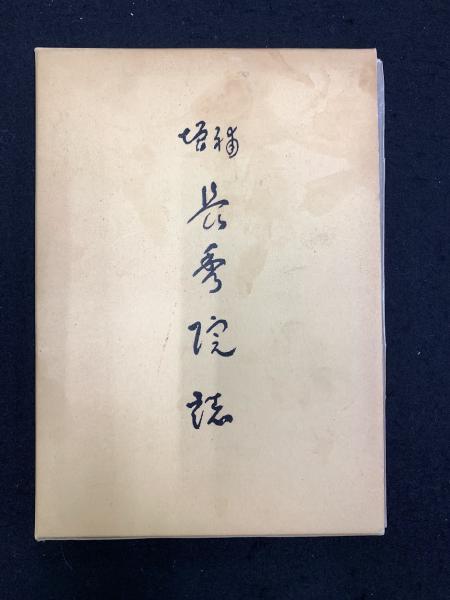 増補
長秀院誌